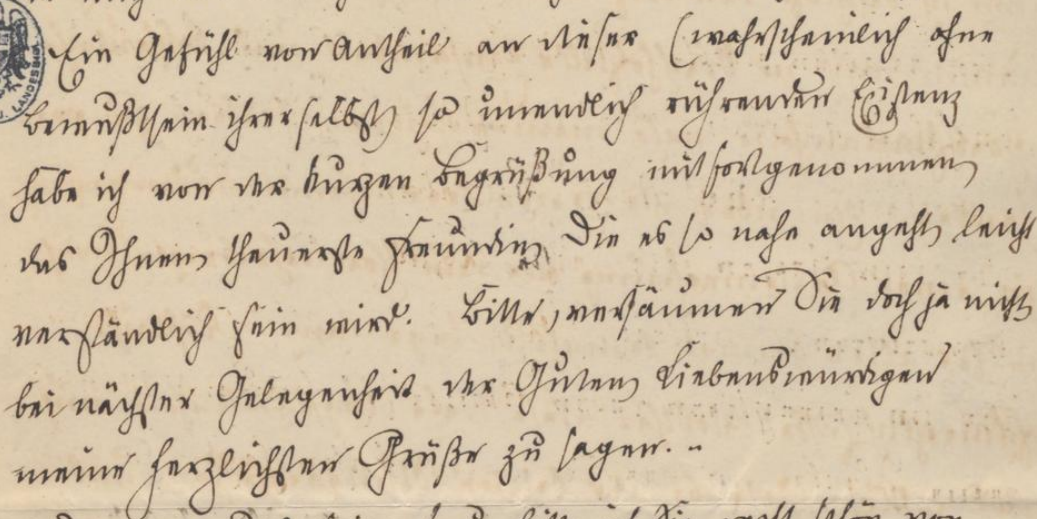 Ein Gefühl von Antheil an dieser (wahrscheinlich ohne
Bewußtsein ihrer selbst) so unendlich rührenden Existenz
habe ich von der kurzen Begrüßung mit fortgenommen
das Ihnen theuerste Freundin, die es so nahe angeht, leicht
verständlich sein wird. Bitte, versäumen Sie doch ja nicht,
bei nächster Gelegenheit der Guten Liebenswürdigen
meine herzlichsten Grüße zu sagen. –
LANDESBIB